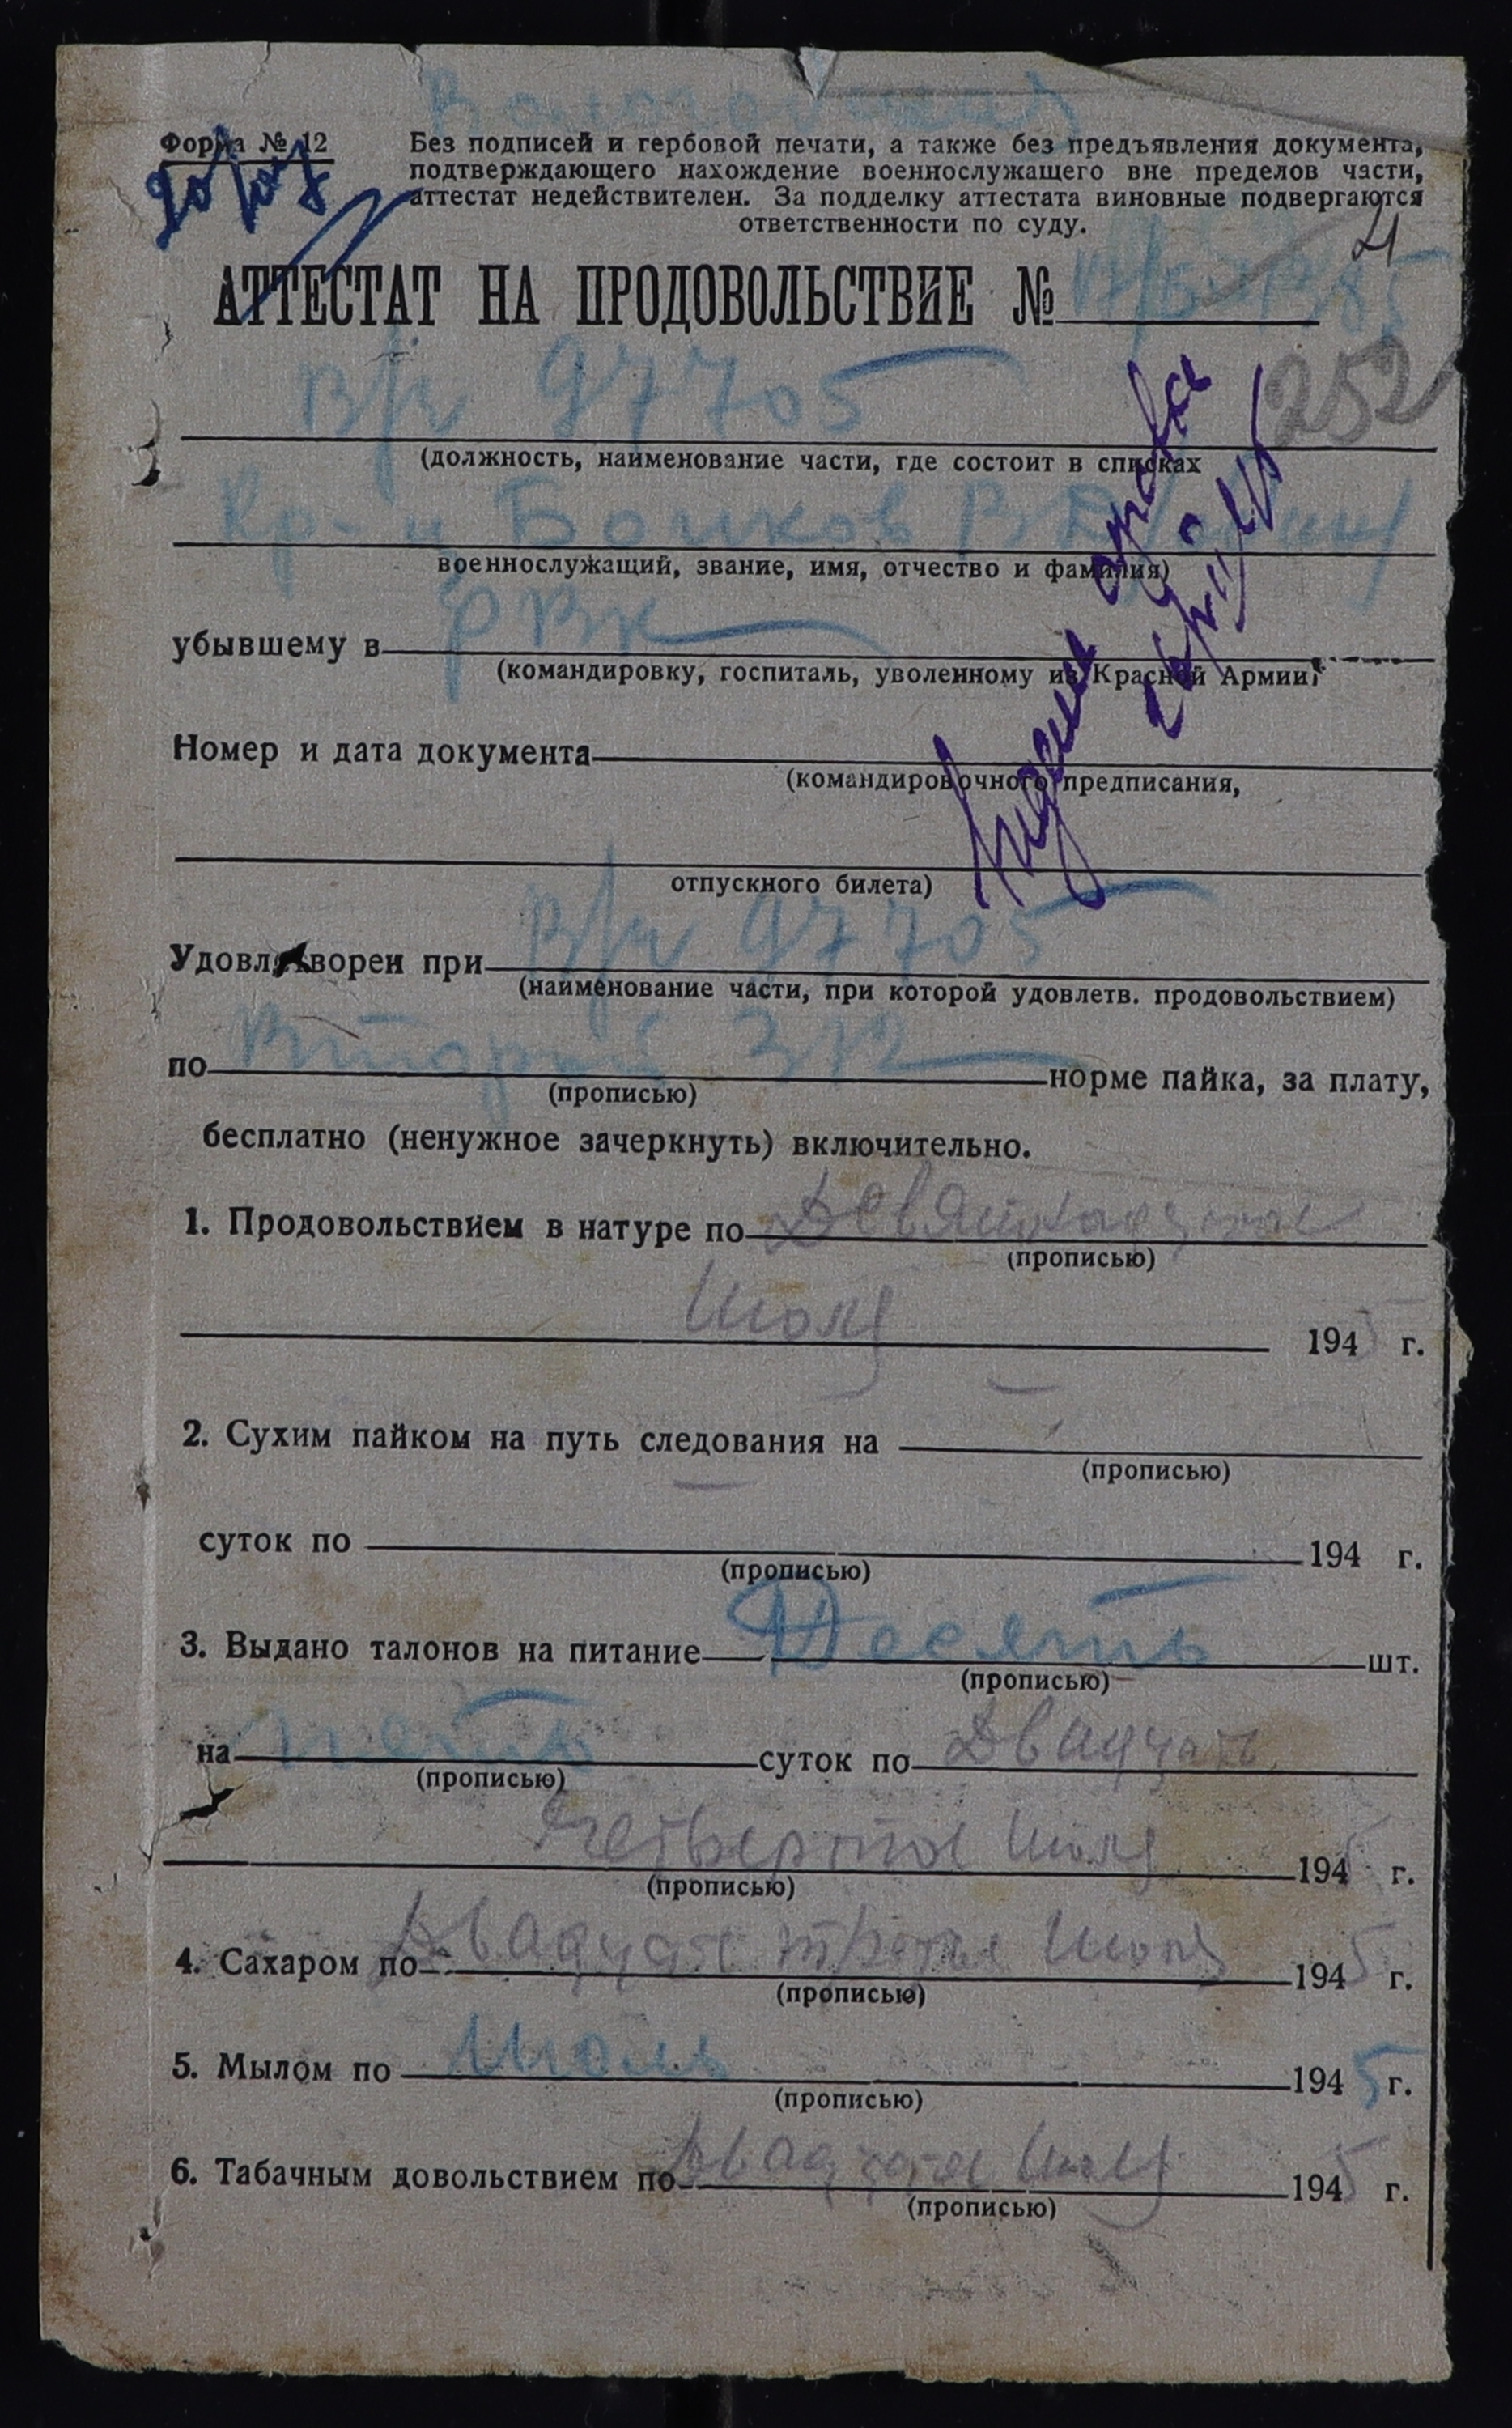 Форма № 12
Без подписей и гербовой печати, а также без предъявления документа,
подтверждающего нахождение военнослужащего вне пределов части,
аттестат недействителен. За подделку аттестата виновные подвергаются
ответственности по суду.
АТТЕСТАТ НА ПРОДОВОЛЬСТВИЕ №
252
в/ч 97705
(должность, наименование части, где состоит в списках
Кр-ц
военнослужащий, звание, имя, отчество и фамилия)
убывшему в РВК
(командировку, госпиталь, уволенному из Красной Армии)
Номер и дата документа
(командировочного предписания,
отпускного билета)
Удовлетворен при в/ч 97705
(наименование части, при которой удовлетв. продовольствием)
по Второй 312 норме пайка, за плату,
(прописью)
бесплатно (ненужное зачеркнуть) включительно.
1. Продовольствием в натуре по Девятнадцатое
(прописью)
Июля 1945 г.
2. Сухим пайком на путь следования на
(прописью)
суток по 194 г.
(прописью)
3. Выдано талонов на питание Десять шт.
(прописью)
на пять суток по Двадцать
(прописью)
четвертое Июля 1945 г.
(прописью)
4. Сахаром по Двадцать третье Июля 1945 г.
(прописью)
5. Мылом по Июль 1945 г.
(прописью)
6. Табачным довольствием по Двадцатое Июля 1945 г.
(прописью)